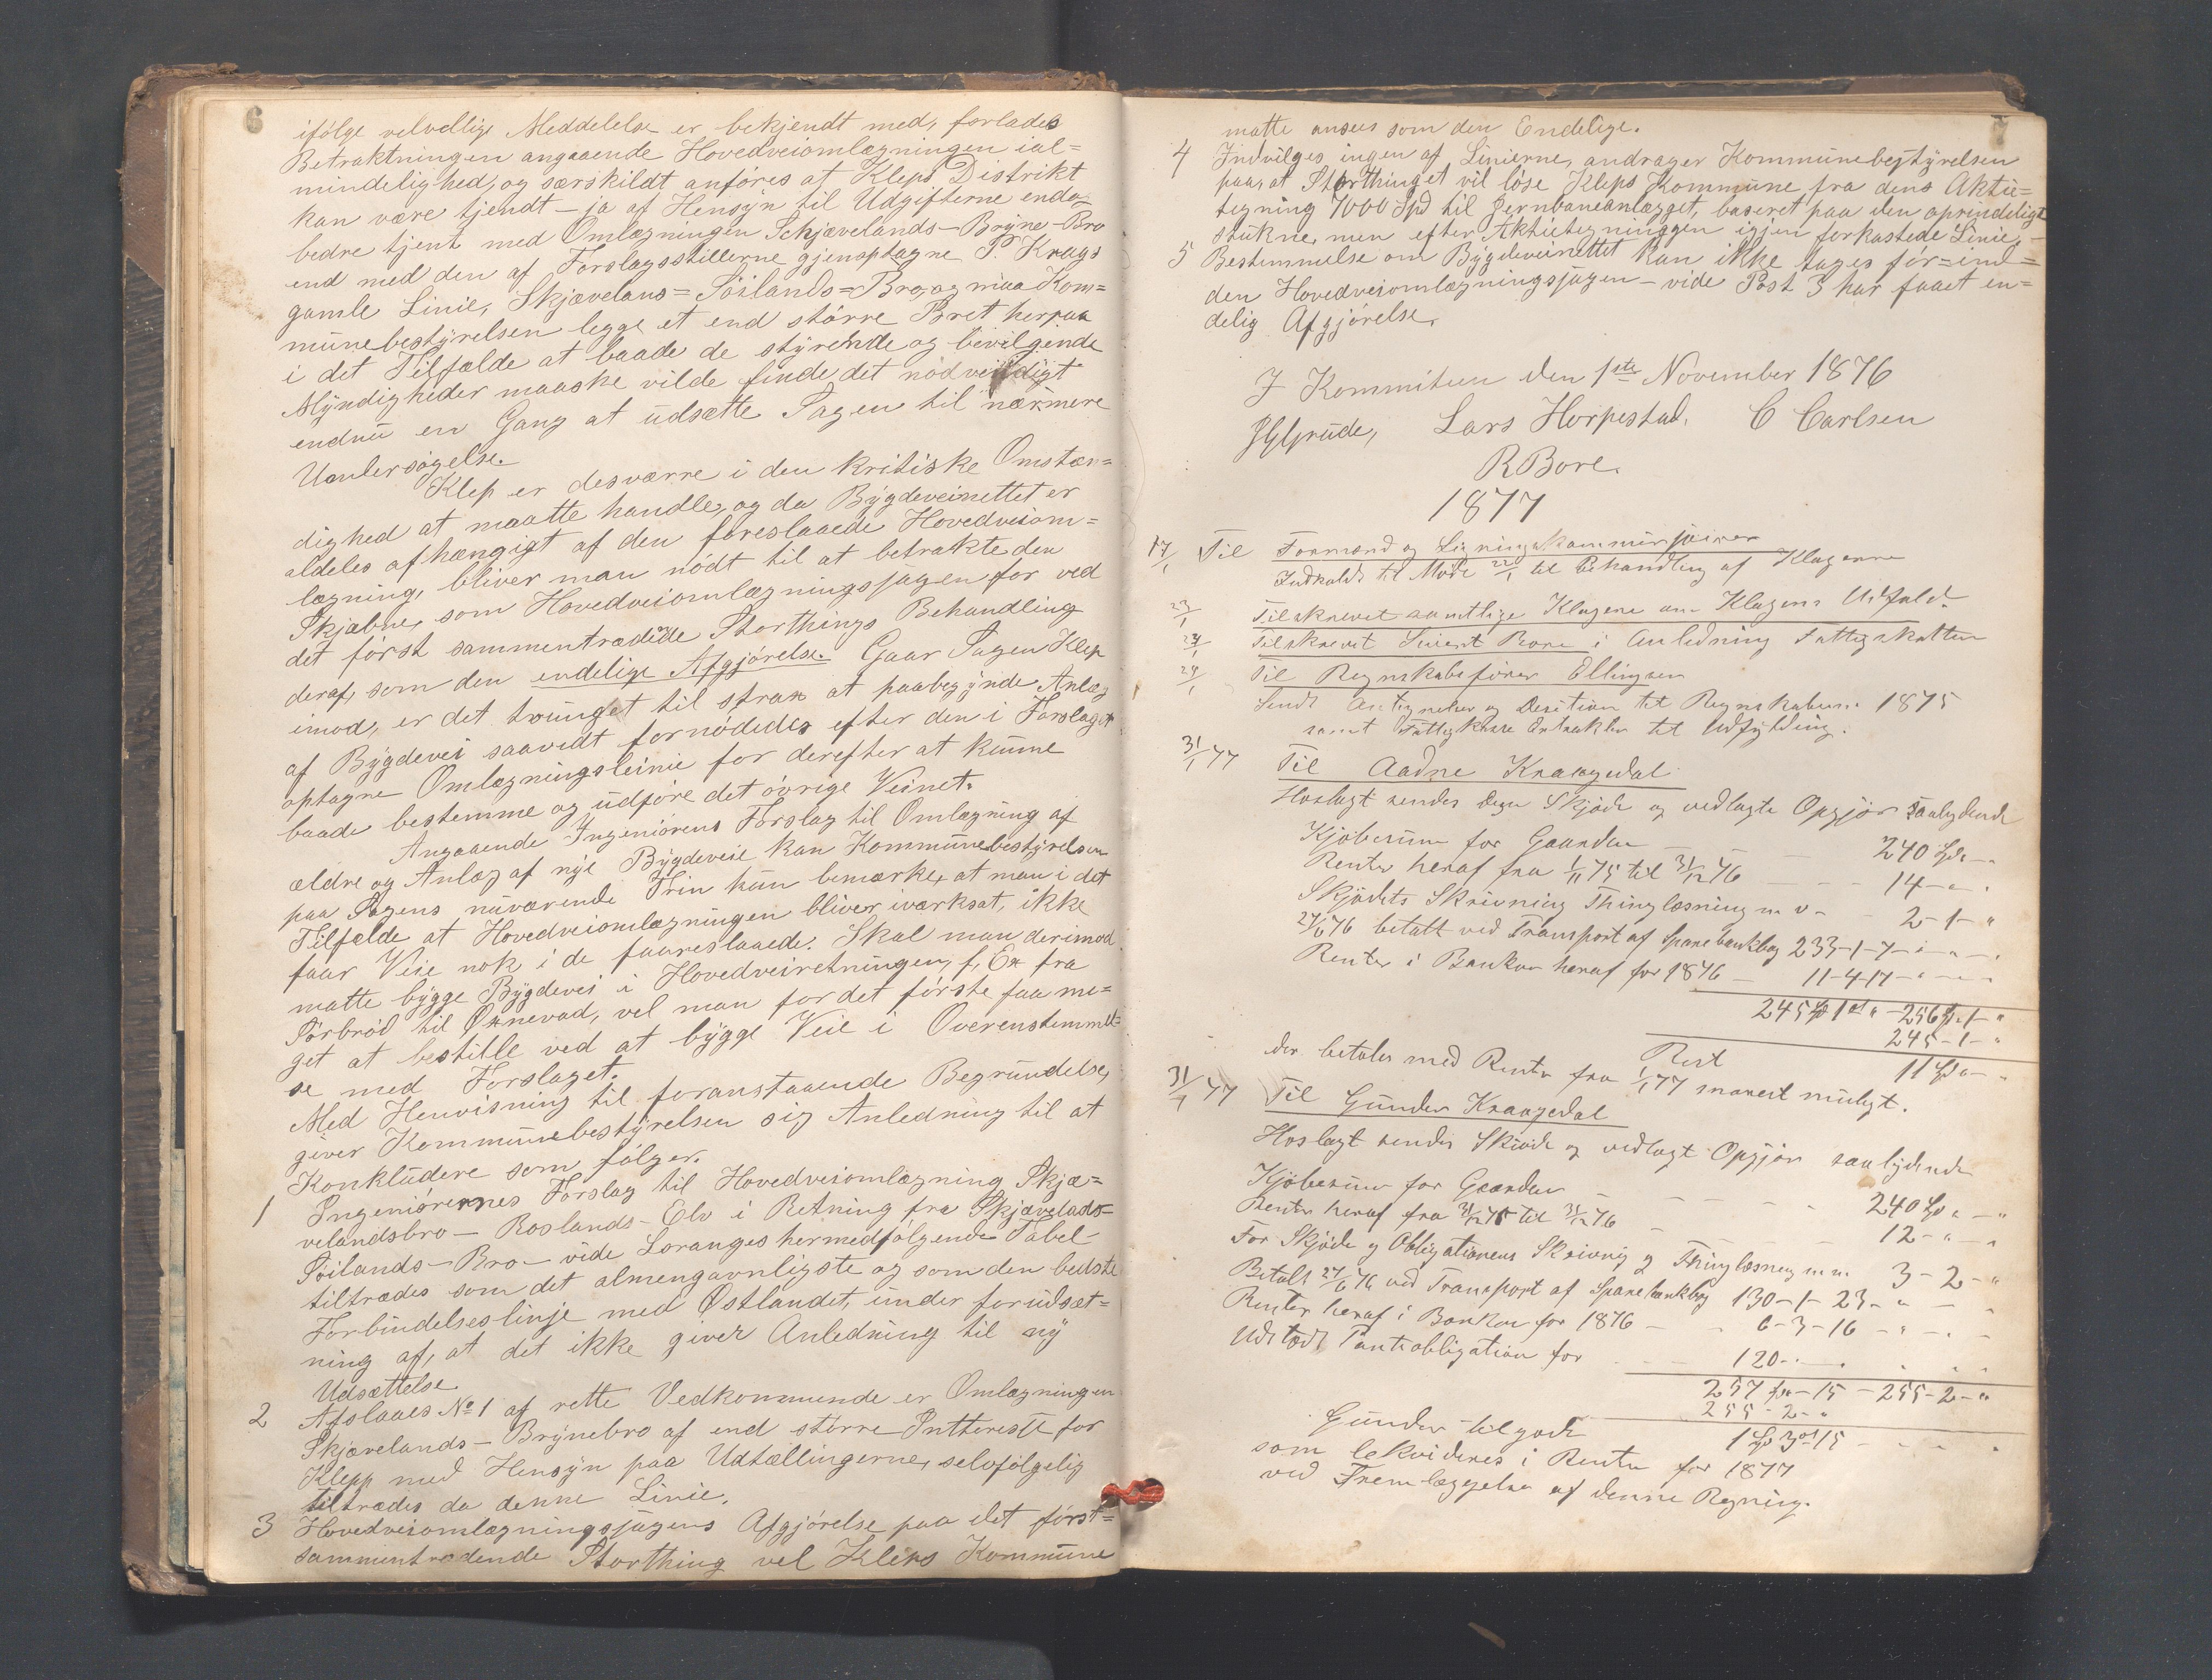 6
ifölge velvellige Meddelelse er bekjendt med, forlades
Betraktningen angaaende Hovedveiomlægningen ial=
mindelighed, og særskildt anföres at Kleps Distrikt
kan være tjendt – ja af Hensyn til Udgifterne endog
bedre tjent med Omlægningen Schjævelands – Bryne – Bro
end med den af Forslagsstillerne gjenoptagne P. Krags
gamle Linie, Skjævelans = Söilands = Bro, og maa Kom=
munebestyrelsen legge et end större Bret herpaa
i det Tilfælde at baade de styrende og bevilgende
Myndigheder maaske vilde finde det nödvendigt
endnu en Gang at udsætte Sagen til nærmere
Undersögelse.
Klep er desværre i den kritiske Omstæn=
dighed at maatte handle, og da Bygdeveinettet er
aldeles afhængigt af den foreslaaede Hovedveiom=
lægning, bliver man nödt til at betrakte den
Skjæbne, som Hovedveiomlægningssagen for ved
det först sammentrædede Storthings Behandling
deraf, som den endelige Afgjörelse. Gaar Sagen Klep
imod, er det tvunget til strax at paabegynde Anlæg
af Bygdevei saavidt fornödedes efter den i Forslaget
optagne Omlægningsleinie for derefter at kunne
baade bestemme og udföre det övrige Veinet.
Angaaende Ingeniörens Forslag til Omlægning af
ældre og Anlæg af nye Bygdeveie kan Kommunebestyrelsen
paa Sagens nuværende Trin kun bemærke, at man i det
Tilfælde at Hovedveiomlægningen bliver iværksat, ikke
faar Veie nok i de faareslaaede. Skal man derimod
matte bygge Bygdevei i Hovedveiretningen, f. Ex fra
Sörbröd til Øxnevad, vel man for det förste faa me=
get at bestille ved at bygge Veie i Overenstemmel=
se med Forslaget.
Med Henvisning til foranstaaende Begrundelse,
giver Kommunebestyrelsen sig Anledning til at
Konkludere som fölger.
1 Ingeniörernes Forslag til Hovedveiomlægning Skjæ=
velandsbro – Roslands – Elv i Retning fra Skjævelads=
Söilands – Bro – vide Loranges hermedfölgende Tabel –
tiltrædes som det almengavnligste og som den bedste
Forbindelseslinje med Østlandet, under forudsæt=
ning af, at det ikke giver Anledning til ny
Udsættelse
2 Afslaaes No 1 af rette Vedkommende er Omlægningen
Skjævelands – Brynebro af end större Intteresse for
Klepp med Hensyn paa Udtællingerne, selvfölgelig
tiltrædes da denne Linie.
3 Hovedveiomlægningssagens Afgjörelse paa det först=
sammentrædende Storthing vel Kleps Kommune
7
matte ansees som den Endelige.
4 Indvilges ingen af Linierne, andrager Kommunebestyrelsen
paa, at Storthinget vil löse Kleps Kommune fra dens Aktie=
tegning 7000 Spd til Jernbaneanlægget, baseret paa den oprindeligt
stukne, men efter Aktietegninggen igjen forkastede Linie. –
5 Bestemmelse om Bygdeveinettet kan ikke tages för = end =
den Hovedveiomlægningssagen – vide Post 3 har faaet en=
delig Afgjörelse.
I Kommiteen den 1ste November 1876
Lars Horpestad. C Carlsen
R Bore.
1877
17/1 Til Formænd og Ligningskommissairer
Indkaldt til Möde 22/1 til Behandling af Klagerne
23/1 Tilskrevet samtlige Klagere om Klagens Udfald.
24/1 Tilskrevet Bore i Anledning Fattigskatten
24/1 Til Regnskabsförer Ellingsen
Sendt Antegnelser og Desition til Regnskaberne 1875
samt Fattigkasse Extrakter til Udfyldning.
31/1 77 Til Aadne Kraagedal
Hoslagt sendes Deres Skjöde og vedlagte Opgjör saalydende
Kjöbesum for Gaarden – – 240 Spd – „
Renter heraf fra 1/11 75 til 31/12 76 – – – 14 – „ – „
Skjödets Skrivning Thinglæsning m v – – 2 – 1 – „
27/6 76 betalt ved Transport af Sparebankbog 233 – 1 – 7 – „ – „
Renter i Banken heraf for 1876 – 11 – 4 – 17 – „ – „
245 Spd 1 ort „ – 256 Spd 1 – „
245 – 1 – „
Rest 11 Spd „ – „
der betales med Renter fra 1/1 77 snarest muligt.
31/1 77 Til Gunder Kraagedal
Hoslagt sendes Skjöde og vedlagt Opgjör saalydende
Kjöbesum for Gaarden – – – – 240 Spd „ – „
Renter heraf fra 31/12 75 til 31/12 76 – – 12 – „ – „
For Skjöde og Obligationens Skrivnig og Thinglæsning m m 3 – 2 – „
Betalt 27/6 76 ved Transport af Sparebankbog 130 – 1 – 23 – „ – „
Renter heraf i Banken for 1876 – – 6 – 3 – 16 – „ – „
Udstædt Pantobligation for – – 120 – „ – „
257 Spd – 15 – 255 – 2 – „
255 – 2 – „
Gunder tilgode 1 Spd 3 ort 15
som lekvideres i Renter for 1877
ved Fremlæggelse af denne Regning.